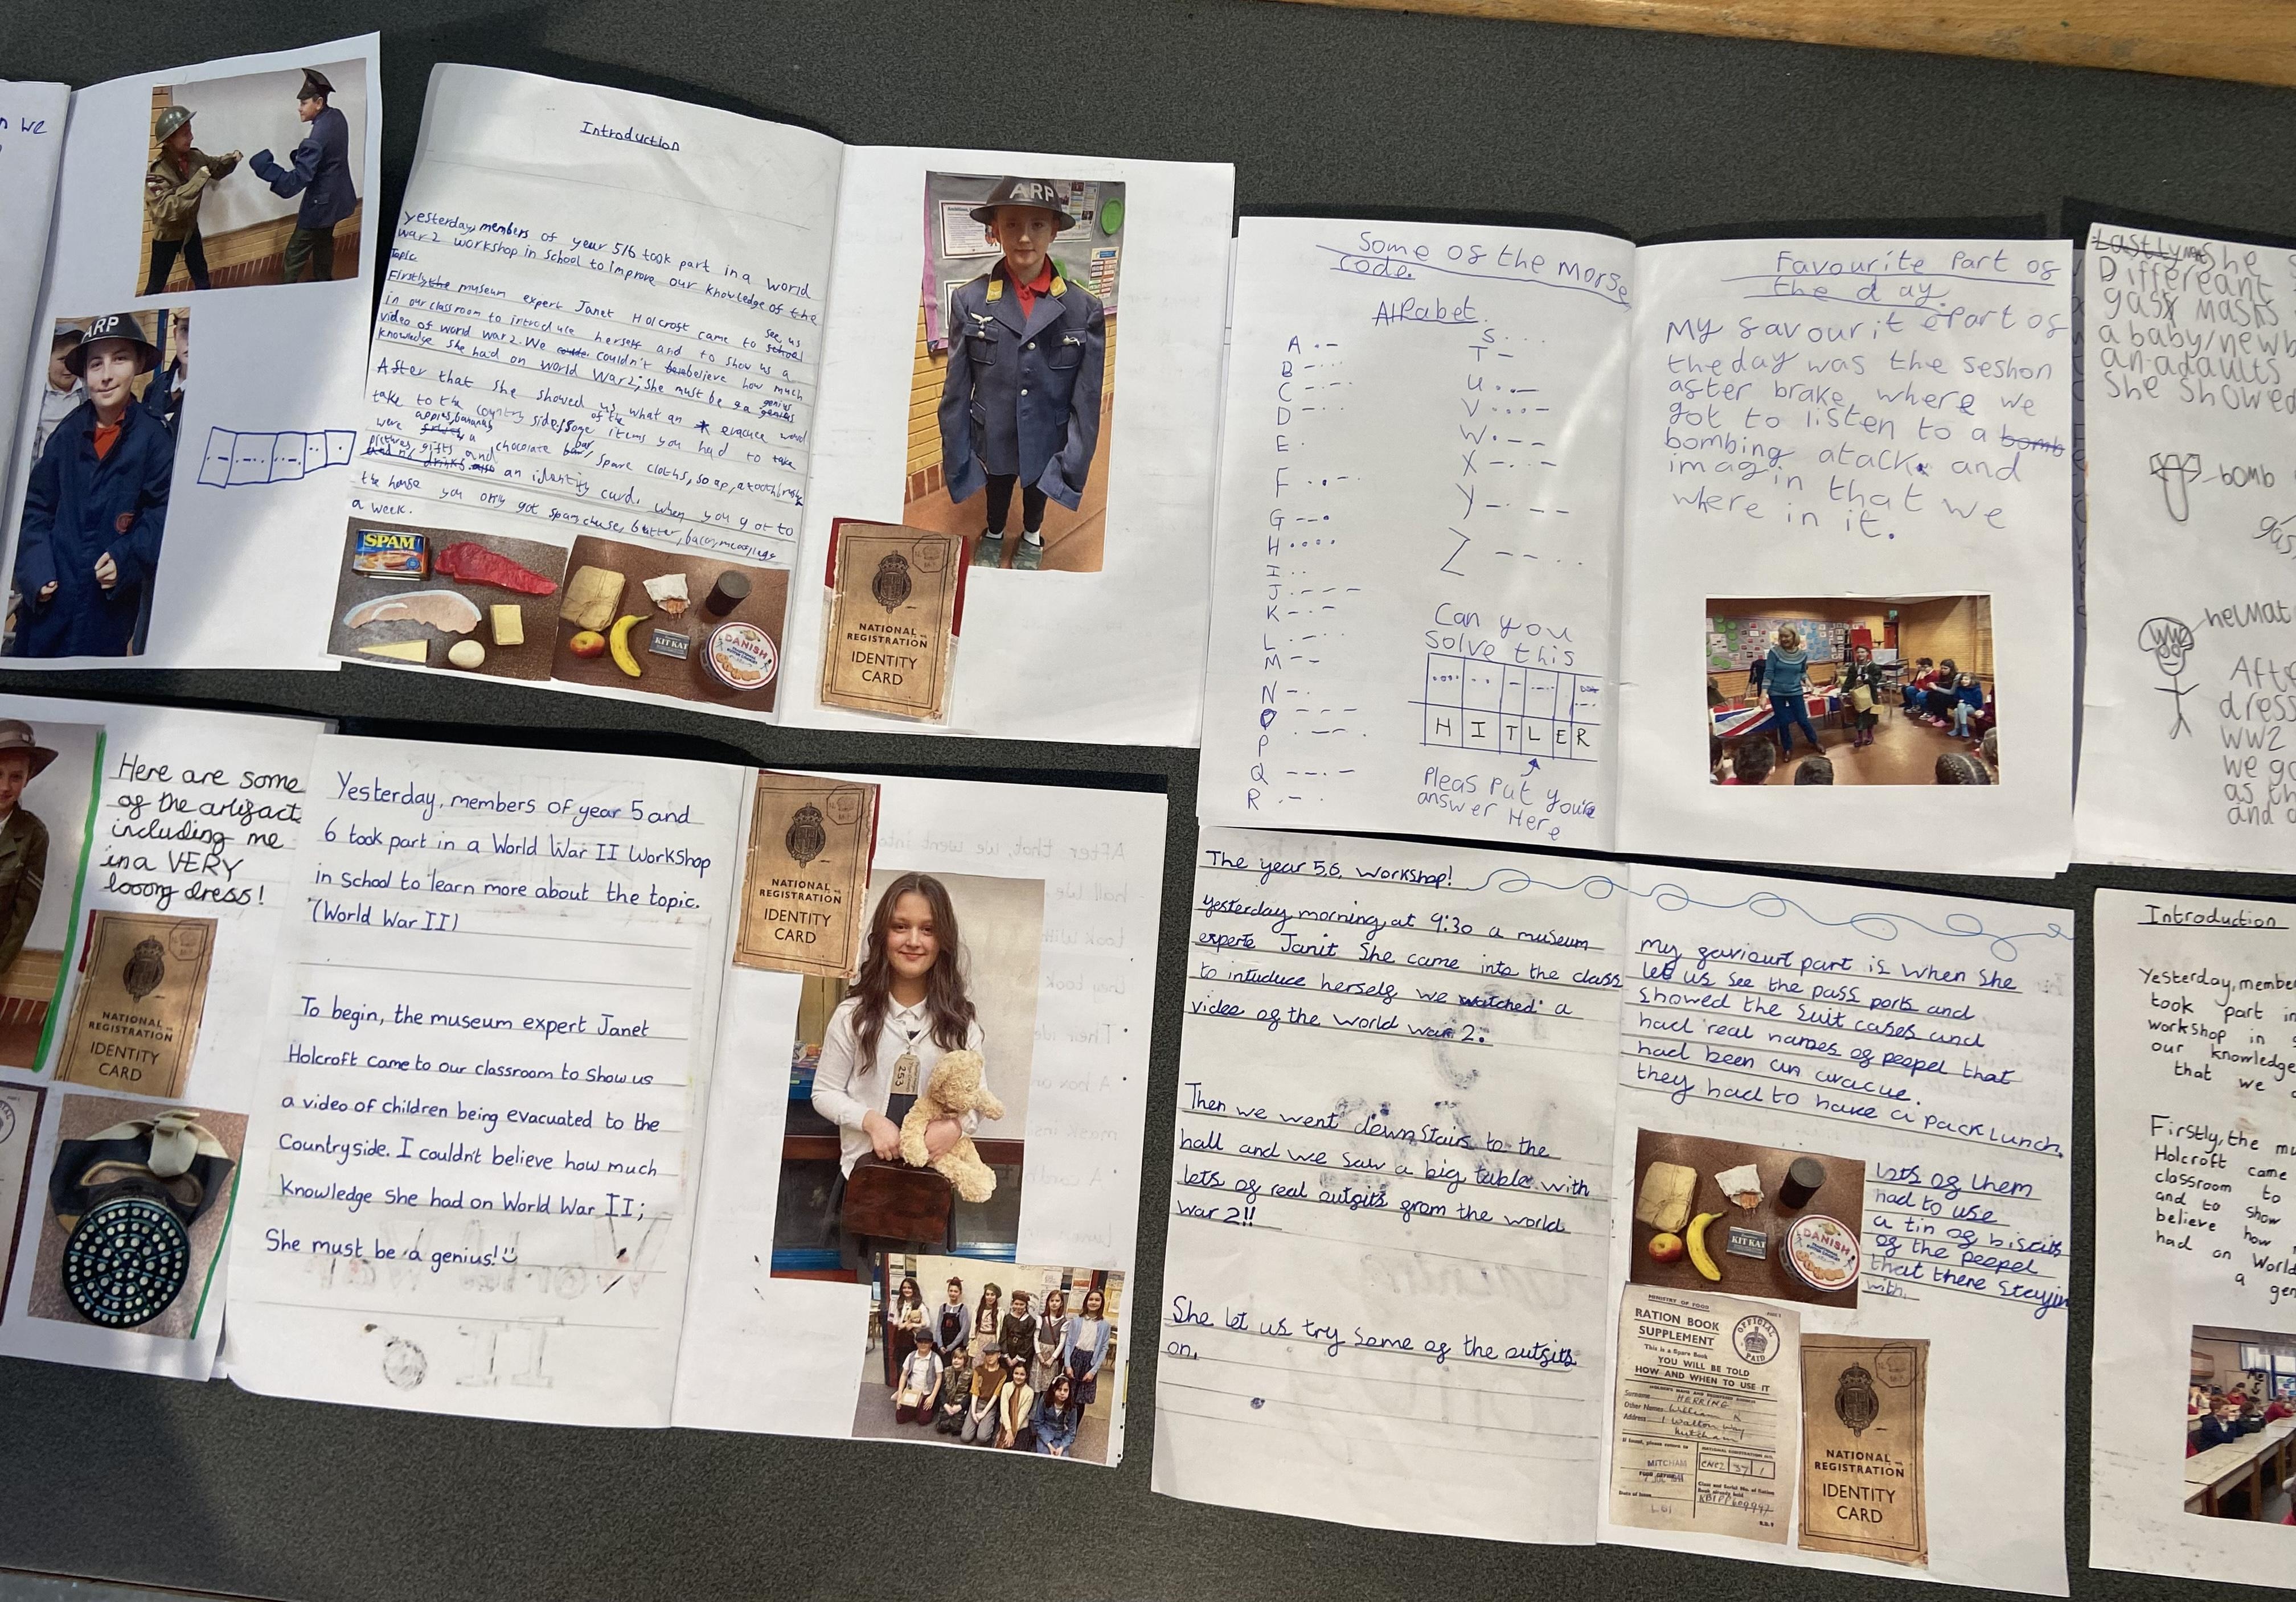 n we
ARP
ARP
Introduction
yesterday, members of year 5/6 took part in a world
war 2 workshop in school to improve our knowledge of the
Topic
Firstly, the museum expert Janet Holcroft came to see us
in our classroom to introduce herself and to show us a
video of world war 2. We couldn't believe how much
knowledge she had on world war 2; she must be a genius
After that she showed us what an evacuee would
take to the country side, some of the items you had to take
were apples, bananas, a chocolate bar, spare cloths, soap, a toothbrush
pictures, gifts and an identity card. when you got to
the house you only got spam, cheese, butter, bacon,
a week.
SPAM
KIT KAT
DANISH
ARP
NATIONAL
REGISTRATION
IDENTITY
CARD
Some of the morse
code.
Alphabet
A .-
B -...
C -.-.
D -..
E .
F ..-.
G --.
H ....
I ..
J .---
K -.-
L .-..
M --
N -.
O ---
P .--.
Q --.-
R .-.
S ...
T -
U ..-
V ...-
W .--
X -..-
Y -.--
Z --..
Can you
solve this
H I T L E R
Pleas put you're
answer Here
Favourite part of
the day.
My favourit epart of
the day was the seshon
after brake where we
got to listen to a bomb
bombing atack and
imagin that we
where in it.
Lastly she
Differeant
gas masks
a baby/newb
an adaults
She showed
bomb
gas
helmat
Afte
dress
WW2
we go
as th
and
Here are some
of the artifact
including me
in a VERY
looong dress!
NATIONAL
REGISTRATION
IDENTITY
CARD
Yesterday, members of year 5 and
6 took part in a World War II Workshop
in School to learn more about the topic.
(World War II)
To begin, the museum expert Janet
Holcroft came to our classroom to show us
a video of children being evacuated to the
Countryside. I couldn't believe how much
knowledge she had on World War II;
She must be a genius!
NATIONAL
REGISTRATION
IDENTITY
CARD
253
The year 5,6, workshop!
yesterday morning, at 9:30 a museum
experte Janit She came into the class
to intuduce herself we watched: a
video of the world war 2.
Then we went down Stairs to the
hall and we saw a big table with
lots of real outfits from the world
war 2!!
She let us try some of the outfits
on,
my faviourt part is when she
let us see the pass ports and
showed the suit cases and
had real names of peepel that
had been an avacue.
they had to have a pack lunch,
lots of them
had to use
a tin of biscits
of the peepel
that there stayin
with.
KIT KAT
DANISH
MINISTRY OF FOOD
RATION BOOK
SUPPLEMENT
This is a Spare Book
YOU WILL BE TOLD
HOW AND WHEN TO USE IT
OFFICIAL
PAID
HOLDER'S NAME AND REGISTERED ADDRESS
Surname HERRING
Other Names William A
Address 1 Walton Way
Mitcham
MITCHAM
Date of Issue
NATIONAL
REGISTRATION
IDENTITY
CARD
Introduction
Yesterday, member
took part in
workshop in s
our knowledge
that we
Firstly, the mu
Holcroft came
classroom to
and to show
believe how
had on World
a gen
Me